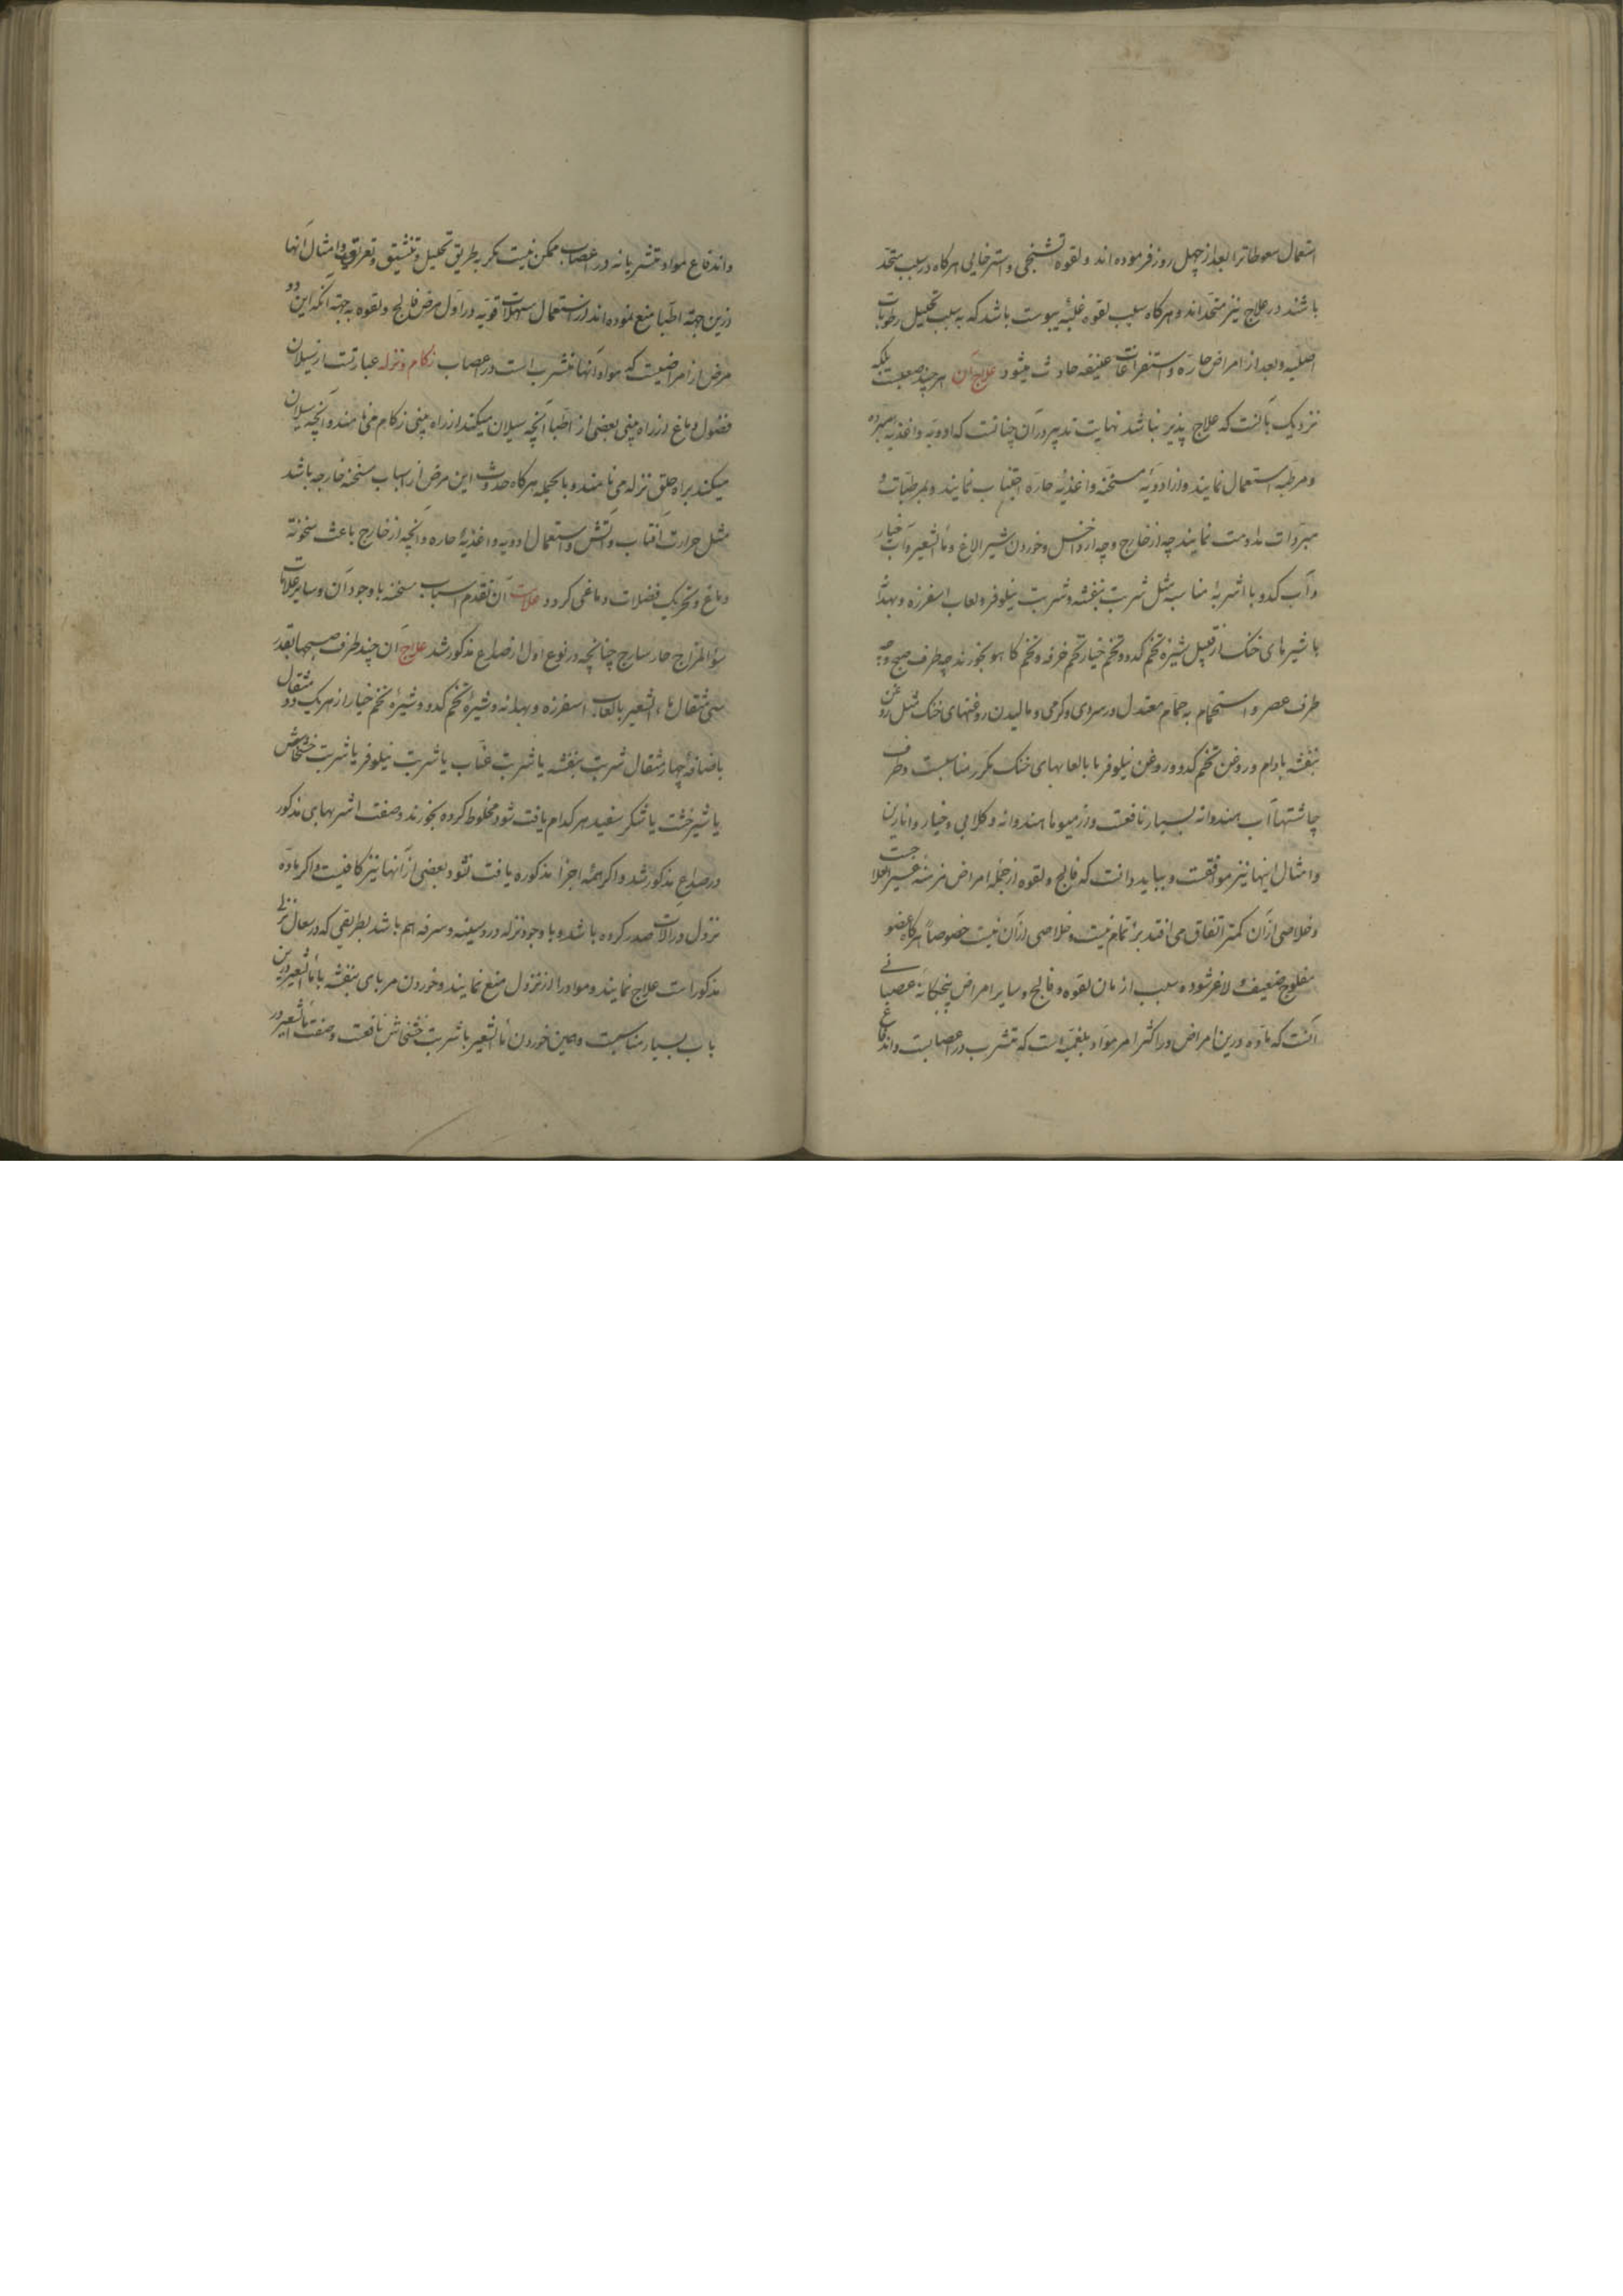 استعمال سعوطاترا بعد از چهل روز فرموده اند و لقوه تشنجی و استرخایی هرکاه در سبب متحد
باشند در علاج نیز متحد اند و هرکاه سبب لقوه غلبهٔ یبوست باشد که به سبب تحلیل رطوبات
اصلیه و بعد از امراض حاره و استفراغات عنیفه حادث میشود علاج آن هرچند صعبست بلکه
نزدیک بآنست که علاج پذیر نباشد نهایت تدبیر در آن چنانست که ادویه و اغذیه مبرده
و مرطبه استعمال نمایند و از ادویهٔ مسخنه و اغذیهٔ حاره اجتناب نمایند و بمرطبات و
مبردات مداومت نمایند چه از خارج و چه از داخل و خوردن شیر الاغ و ماءالشعیر و آب خیار
و آب کدو با اشربهٔ مناسبه مثل شربت بنفشه و شربت نیلوفر و لعاب اسفرزه و بهدانه
با شیرهای خنک از قبیل شیرهٔ تخم کدو و تخم خیار و تخم خرفه و تخم کاهو بخورند چه طرف صبح و چه
طرف عصر و استحمام به حمام معتدل در سردی و کرمی و مالیدن روغنهای خنک مثل روغن
بنفشه بادام و روغن تخم کدو و روغن نیلوفر با لعابهای خنک مکرر مناسبست و طرف
چاشتها آب هندوانه بسیار نافعست و از میوها هندوانه و کلابی و خیار و انار
و امثال اینها نیز موافقست و بباید دانست که فالج و لقوه از جمله امراض مزمنه عسیر العلاجست
و خلاصی از آن کمتر اتفاق می افتد بزء تمام نیست و خلاصی از آن نیست خصوصاً هرکاه عضو
مفلوج ضعیف و لاغر شود و سبب ازمان لقوه و فالج و سایر امراض پنجکانه عصبانی
آنست که ماده درین امراض در اکثر امر مواد بلغمیه است که متشرب در اعصابست و اندفاع
و اندفاع مواد متشربانه در اعصاب ممکن نیست مکر به طریق تحلیل و تنشیف و تعریق و امثال آنها
و ازین جهة اطبا منع نموده اند از استعمال مسهلات قویه در اول مرض فالج و لقوه به جهة آنکه این دو
مرض از امراضیست که مواد آنها متشرب است در اعصاب زکام و نزله عبارتست از سیلان
فضول دماغ از راه بینی بعضی از اطبا آنچه سیلان میکند از راه بینی زکام می نامند و آنچه سیلان
میکند براه حلق نزله می نامند و بالجمله هرکاه حدوث این مرض از اسباب مسخنه خارجه باشد
مثل حرارت آفتاب و آتش و استعمال ادویه و اغذیهٔ حاره و آنچه از خارج باعث سخونة
دماغ و تحریک فضلات دماغی کردد علامت آن تقدم اسباب مسخنه با وجود آن و سایر علامات
سؤالمزاج حار ساذج چنانچه در نوع اول از صداع مذکور شد علاج آن چند طرف صبحها بقدر
سی مثقال ماءالشعیر بالعاب اسفرزه و بهدانه و شیرهٔ تخم کدو و شیرهٔ تخم خیار از هریک دو مثقال
باضافهٔ چهار مثقال شربت بنفشه یا شربت عناب یا شربت نیلوفر یا شربت خشخاش
یا شیرخشت یا شکر سفید هرکدام یافت شود مخلوط کرده بخورند و صفت اشربهای مذکور
در صداع مذکور شد و اکر همهٔ اجزاء مذکوره یافت نشود بعضی از آنها نیز کافیست و اکر ماده
نزول در آلات صدر کرده باشد و با وجود نزله درد سینه و سرفه هم باشد بطریقی که در سعال نزلی
مذکور است علاج نمایند و مواد را از نزول منع نمایند و خوردن مربای بنفشه با ماءالشعیر درین
باب بسیار مناسبست و همین خوردن ماءالشعیر با شربت خشخاش نافعست و صفت ماءالشعیر در